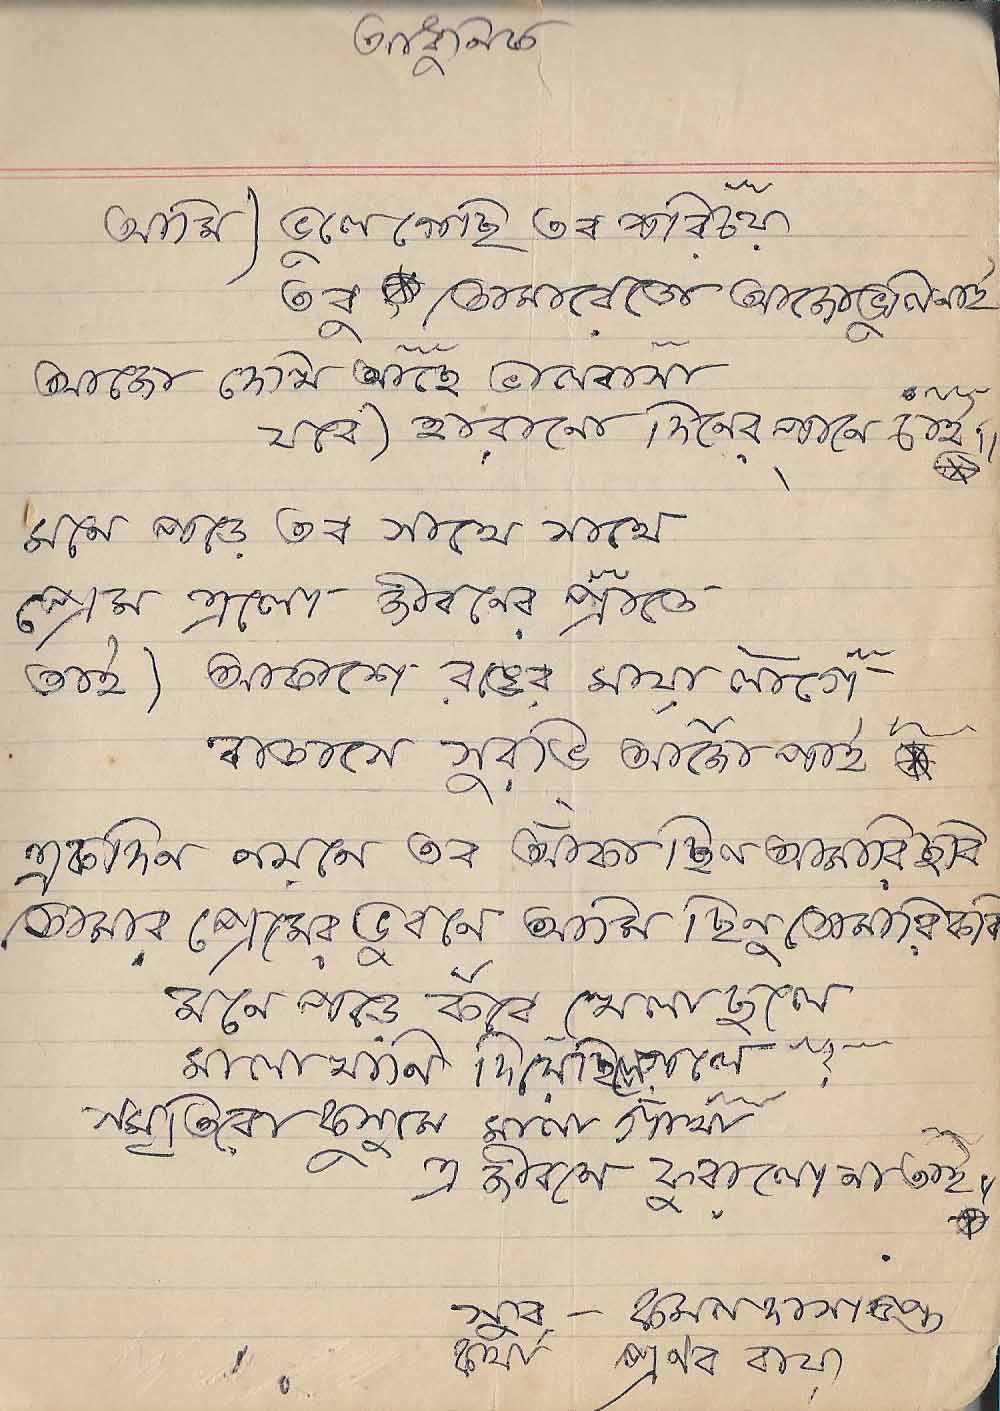 আধুনিক
আমি) ভুলে গেছি তব পরিচয়
তবু তোমারেতো আজো ভুলি নাই
আজো জেগে আছে ভালবাসা
যবে) হারানো দিনের পানে চাই॥
মনে পড়ে তব সাথে সাথে
প্রেম এলো জীবনের প্রাতে
তাই) আকাশে রঙের মায়া লাগে
বাতাসে সুরভি আজো পাই
একদিন নয়নে তব আঁকা ছিল আমারি ছবি
তোমার প্রেমের ভুবনে আমি ছিনু তোমারি কবি
মনে পড়ে কবে খেলা ছলে
মালাখানি দিয়েছিলে গলে
সমৃতিরো কুসুমে মালা গাঁথা
এ জীবনে ফুরালো না তাই॥
সুর – কমল দাসগুপ্ত
কথা প্রণব রায়